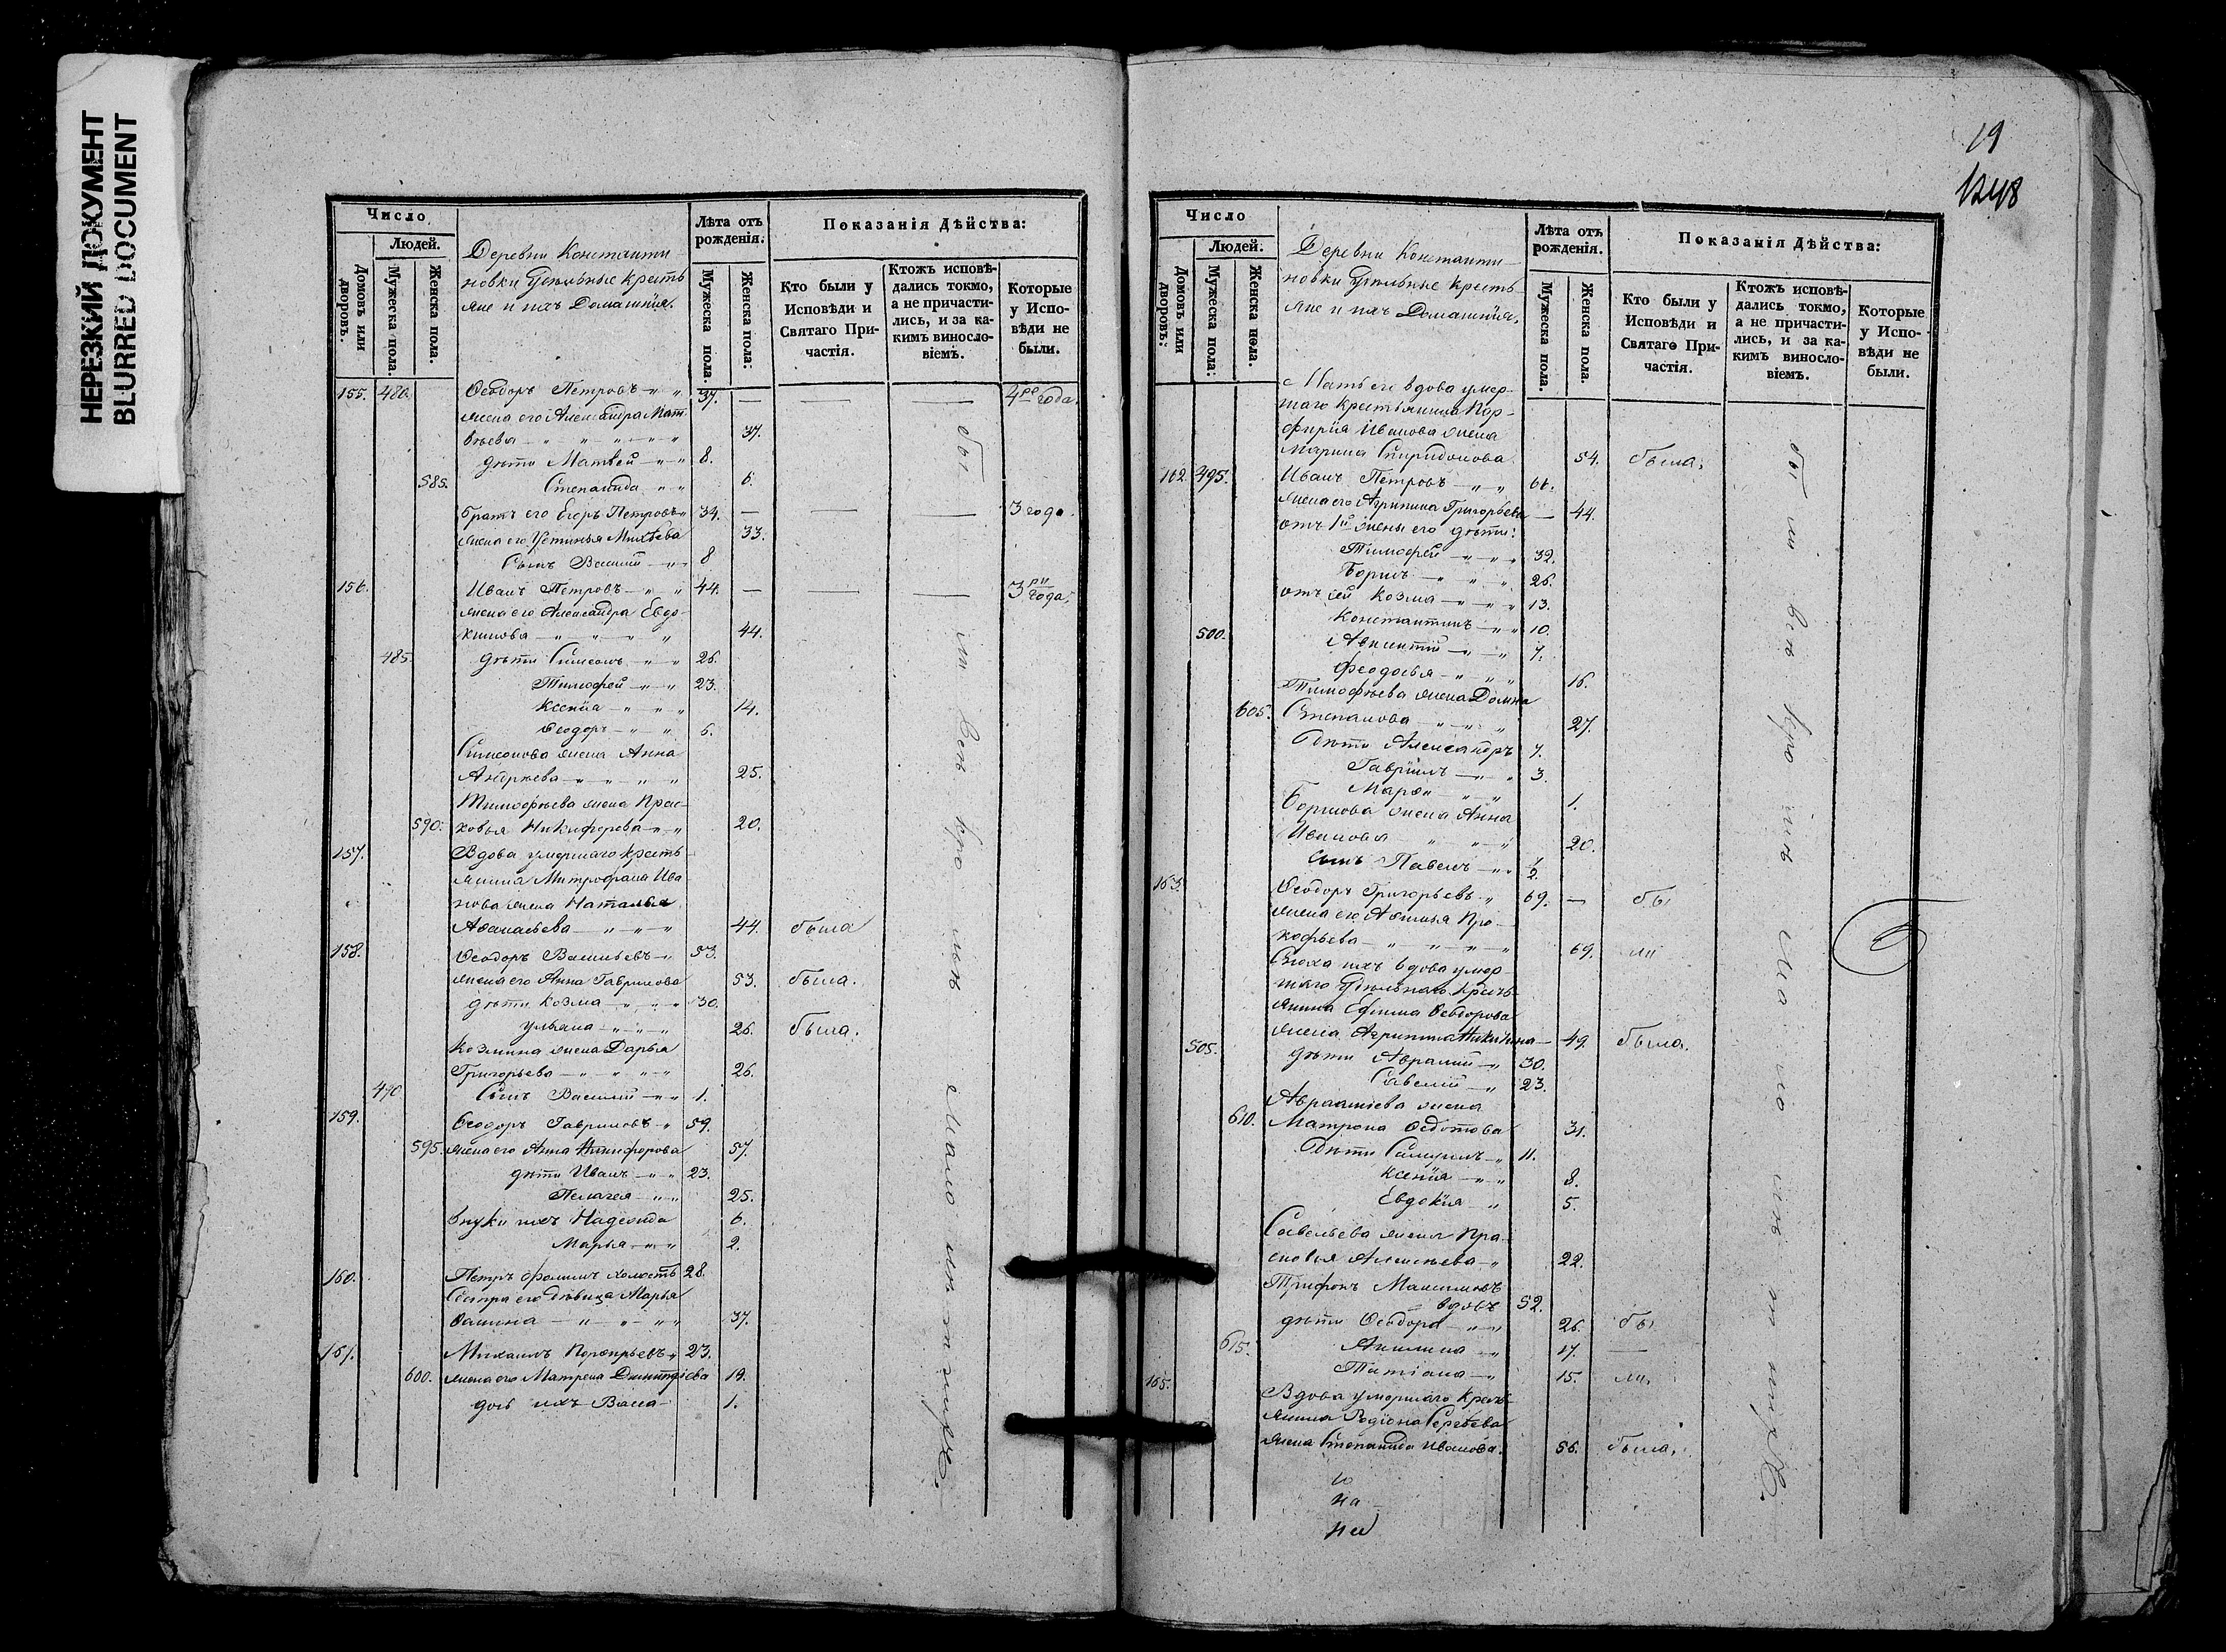 НЕРЕЗКИЙ ДОКУМЕНТ
BLURRED DOCUMENT
Число
Людей.
Домовъ или дворовъ.
Мужеска пола.
Женска пола.
Деревни Константи-
новки Удѣльные Кресть
яне и ихъ Домашнiя.
Лѣта отъ рожденiя.
Мужеска пола.
Женска пола:
Показанiя Дѣйства:
Кто были у Исповѣди и Святаго При-частiя.
Ктожъ исповѣ-дались токмо, а не причасти-лись, и за ка-кимъ винословiемъ.
Которые у Испо-вѣди не были.
155. 480. Ѳеодоръ Петровъ 37. — — — 4ре года.
жена его Александра Мат
вѣева 37.
дѣти Матвей 8.
585. Степанида 6.
братъ его Егоръ Петровъ 34. — — — 3 года.
жена его Устинья Михѣева 33.
Сынъ Василiй 8
156. Иванъ Петровъ 44. — — — 3ри года.
жена его Александра Евдо-
кимова 44.
485. дѣти Симеонъ 26.
Тимофей 23.
Ксенiя 14.
Ѳеодоръ 5.
Симеонова жена Анна
Андреева 25.
Тимофѣева жена Прас-
590. ковья Никифорова 20.
157. Вдова умершаго кресть-
янина Митрофана Ива
нова жена Наталья
Аѳанасьева 44. была
158. Ѳеодоръ Васильевъ 53.
жена его Анна Гаврилова 53. была.
дѣти Козма 30.
Ульяна 26. была.
Козмина жена Дарья
Григорьева 26.
490 Сынъ Василiй 1.
159. Ѳеодоръ Гавриловъ 59.
595. жена его Анна Никифорова 57.
дѣти Иванъ 23.
Пелагея 25.
внуки ихъ Надежда 6.
Марья 2.
160. Петръ Ѳоминъ холостъ 28.
Сестра его дѣвица Марья
Ѳомина 37.
161. Михаилъ Порфирьевъ 23.
600. жена его Матрена Дмитрiева 19.
дочь ихъ Васса 1.
бы ли всѣ кро мѣ мало лѣт
19
1248
Число
Людей.
Домовъ или дворовъ:
Мужеска пола:
Женска пола.
Деревни Константи-
новки Удѣльные Кресть-
яне и ихъ Домашнiя.
Лѣта отъ рожденiя.
Мужеска пола.
Женска пола.
Показанiя Дѣйства:
Кто были у Исповѣди и Святаго При-частiя.
Ктожъ исповѣ-дались токмо, а не причасти-лись, и за ка-кимъ винословiемъ.
Которые у Испо-вѣди не были.
Мать его вдова умер-
шаго Крестьянина Пор-
фирiя Иванова жена
Марина Спиридонова 54. была.
162 495. Иванъ Петровъ 61.
жена его Агрипина Григорьева — 44.
отъ 1й жены его дѣти:
Тимофей 32.
Борисъ 26.
отъ сей Козма 13.
500. Константинъ 10.
Авксентiй 7.
Феодосья 16.
Тимофѣева жена Домна
605. Степанова 27.
Дѣти Александръ 7.
Гаврiилъ 3.
Марѳа 1.
Борисова жена Анна
Иванова 20.
сынъ Павелъ ½.
163. Ѳеодоръ Григорьевъ 69. — бы
жена его Аксинья Про-
кофьева 69. ли
Сноха ихъ вдова умер-
шаго Удѣльнаго Кресть-
янина Ефима Ѳеодорова
жена Агрипина Никитина — 49. была.
505. дѣти Аврамiй 30.
Савелiй 23.
Аврамiева жена
610. Матрона Ѳедотова 31.
Дѣти Самуилъ 11.
Ксенiя 8.
Евдокiя 5.
Савельева жена Пра-
сковья Алексѣева 22.
Трифонъ Максимовъ
вдовъ 52.
дѣти Ѳеодора 26. бы
615. Акилина 17. —
Татiана 15. ли.
165. Вдова умершаго Кресть-
янина Родiона Сергѣева
жена Степанида Иванова. 56. была.
бы ли всѣ кро мѣ мало лѣт